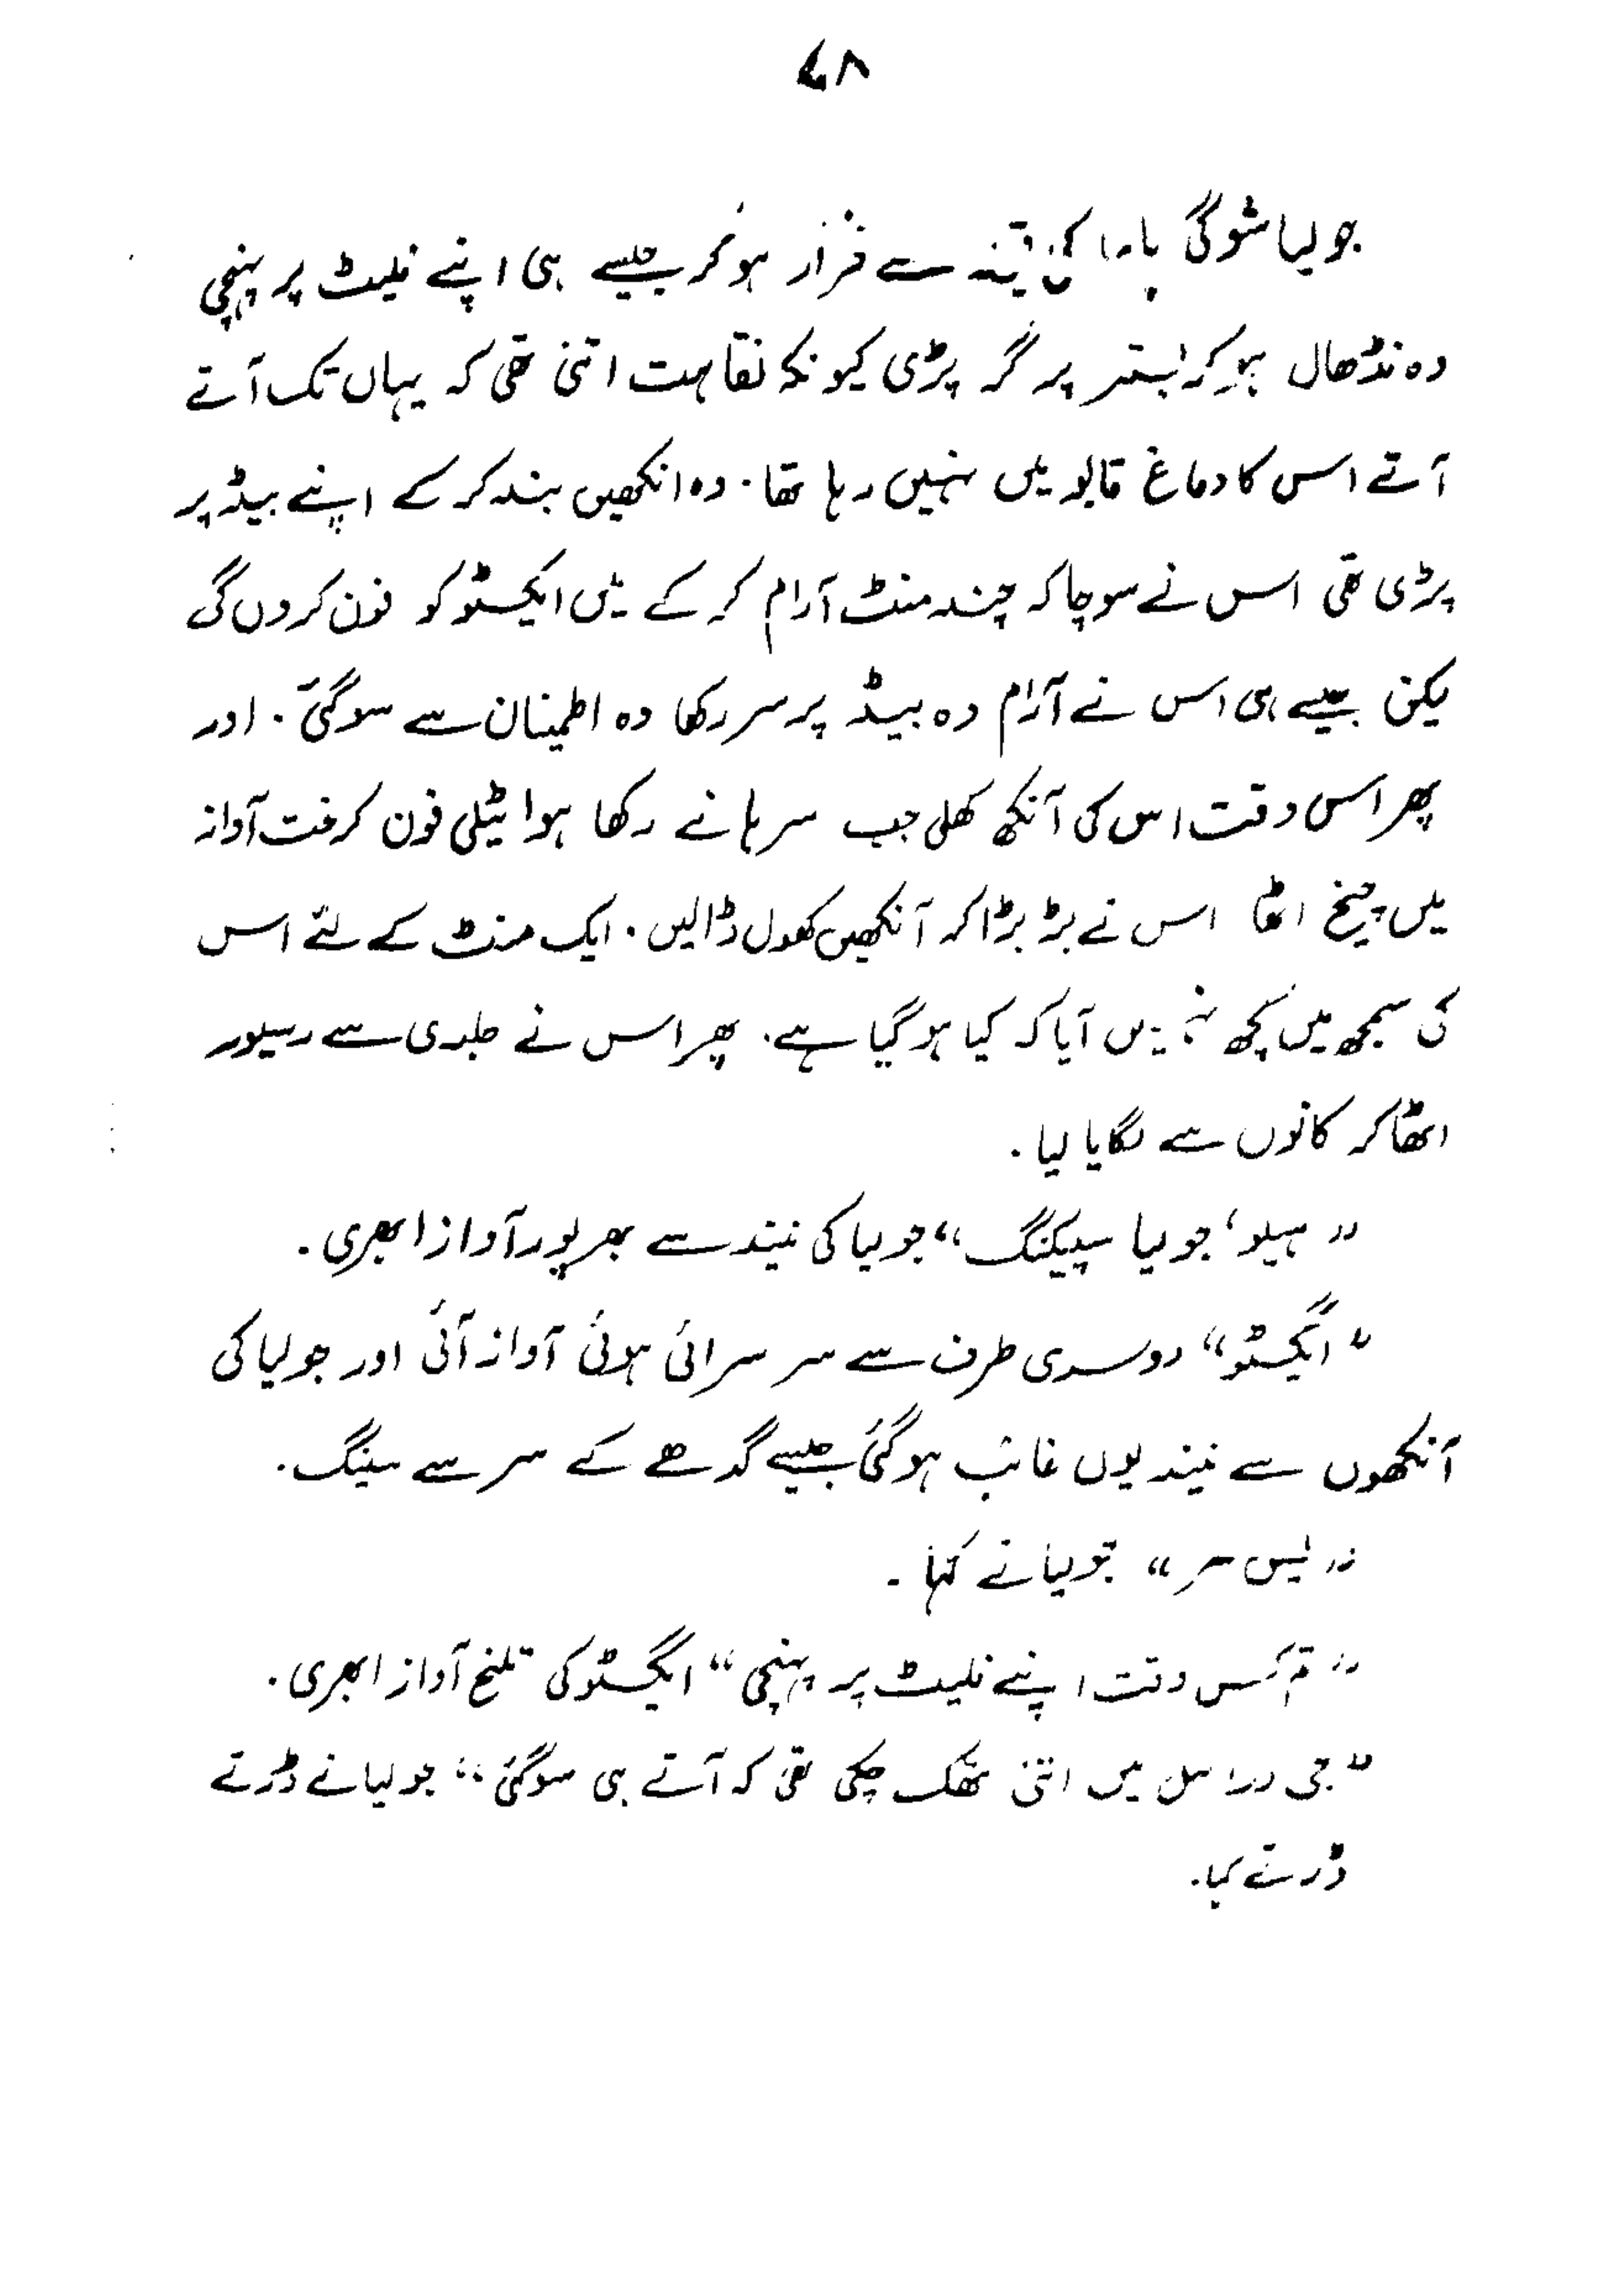 ۷۸
جولیا شوگی پاما کی قید سے فرار ہو کر جیسے ہی اپنے فلیٹ پر پہنچی
وہ نڈھال ہو کر بستر پر گر پڑی کیونکہ نقاہت اتنی تھی کہ یہاں تک آتے
آتے اس کا دماغ قابو میں نہیں رہا تھا۔ وہ انکھیں بند کر کے اپنے بیڈ پر
پڑی تھی اس نے سوچا کہ چند منٹ آرام کر کے میں ایکسٹو کو فون کروں گی
لیکن جیسے ہی اس نے آرام دہ بیڈ پر سر رکھا وہ اطمینان سے سو گئی۔ اور
پھر اس وقت اس کی آنکھ کھلی جب سرہانے رکھا ہوا ٹیلی فون کرخت آواز
میں چیخ اٹھا اس نے ہڑبڑا کر آنکھیں کھول ڈالیں۔ ایک منٹ کے لئے اس
کی سمجھ میں کچھ نہیں آیا کہ کیا ہو گیا ہے۔ پھر اس نے جلدی سے رسیور
اٹھا کر کانوں سے لگایا لیا۔
"ہیلو، جولیا سپیکنگ" جولیا کی نیند سے بھرپور آواز ابھری۔
"ایکسٹو" دوسری طرف سے سرسرائی ہوئی آواز آئی اور جولیا کی
آنکھوں سے نیند یوں غائب ہو گئی جیسے گدھے کے سر سے سینگ۔
"یس سر" جولیا نے کہا۔
"تم کس وقت اپنے فلیٹ پر پہنچی" ایکسٹو کی تلخ آواز ابھری۔
"جی دراصل میں اتنی تھک چکی تھی کہ آتے ہی سو گئی" جولیا نے ڈرتے
ڈرتے کہا۔